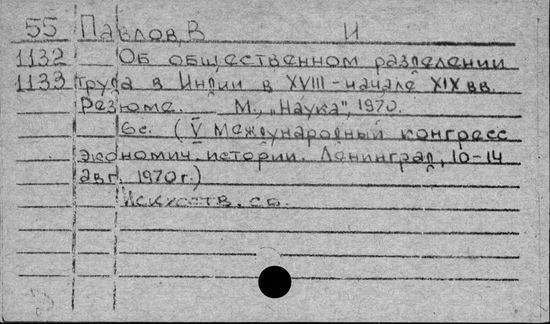 55 Павлов, В И
1132 Об общественном разделении
1133 труда в Индии в XVIII – начале XIX вв.
Резюме. М., „Наука", 1970.
6с. (V Международный конгресс
экономич. истории. Ленинград, 10-14
авг. 1970г.)
Искусств. сб.